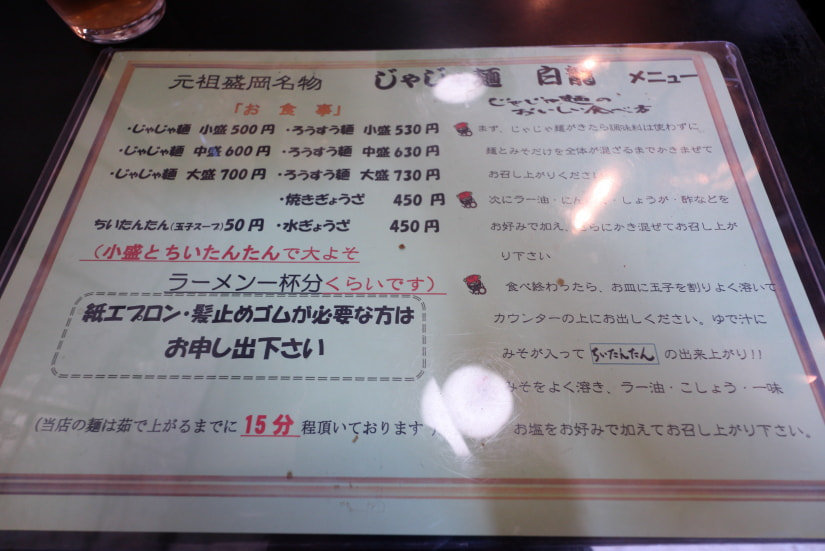 元祖盛岡名物 じゃじゃ麺 白龍 メニュー
「お食事」
・じゃじゃ麺 小盛 500円 ・ろうすう麺 小盛 530円
・じゃじゃ麺 中盛 600円 ・ろうすう麺 中盛 630円
・じゃじゃ麺 大盛 700円 ・ろうすう麺 大盛 730円
・焼きぎょうざ 450円
ちいたんたん(玉子スープ)50円 ・水ぎょうざ 450円
(小盛とちいたんたんで大よそ
ラーメン一杯分くらいです)
紙エプロン・髪止めゴムが必要な方は
お申し出下さい
(当店の麺は茹で上がるまでに 15分 程頂いております)
じゃじゃ麺の
おいしい食べ方
まず、じゃじゃ麺がきたら調味料は使わずに
麺とみそだけを全体が混ざるまでかきまぜて
お召し上がりください
次にラー油・にん・しょうが・酢などを
お好みで加え、さらにかき混ぜてお召し上が
り下さい
食べ終わったら、お皿に玉子を割りよく溶いて
カウンターの上にお出しください。ゆで汁に
みそが入って ちいたんたん の出来上がり!!
みそをよく溶き、ラー油・こしょう・一味
お塩をお好みで加えてお召し上がり下さい。